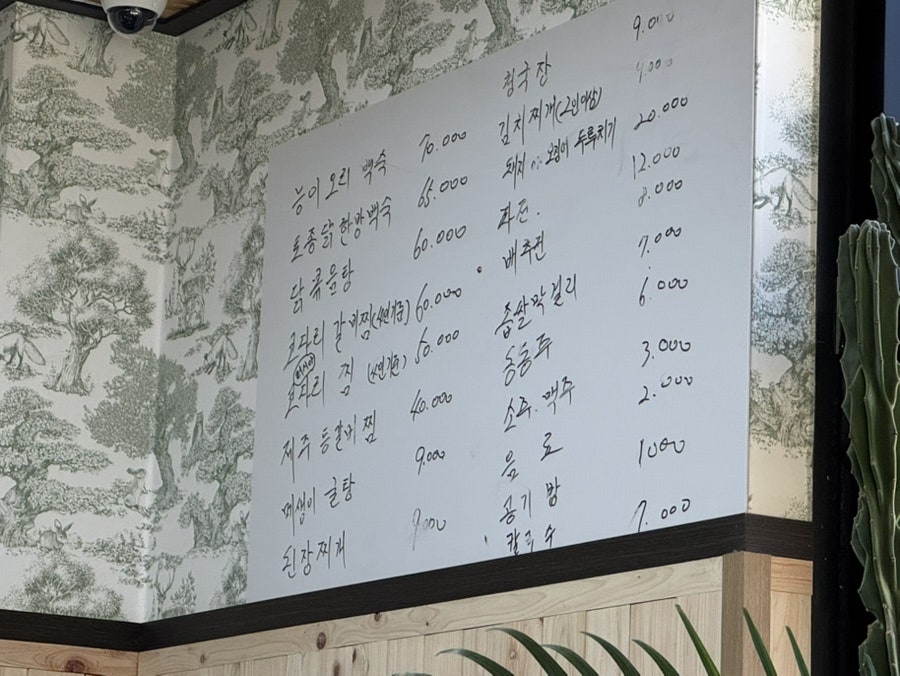 능이 오리 백숙 70.000
토종닭 한방백숙 65.000
닭볶음탕 60.000
코다리 갈비찜(4인기준) 60.000
코다리 찜 (4인기준) 50.000
제주 등갈비찜 40.000
매생이 굴탕 9.000
된장찌개 9000
청국장 9.000
김치찌개(2인이상) 9.000
돼지 오징어 두루치기 20.000
파전. 12.000
배추전 8.000
좁쌀막걸리 7.000
동동주 6.000
소주. 맥주 3.000
음료 2.000
공기밥 1000
칼국수 7.000